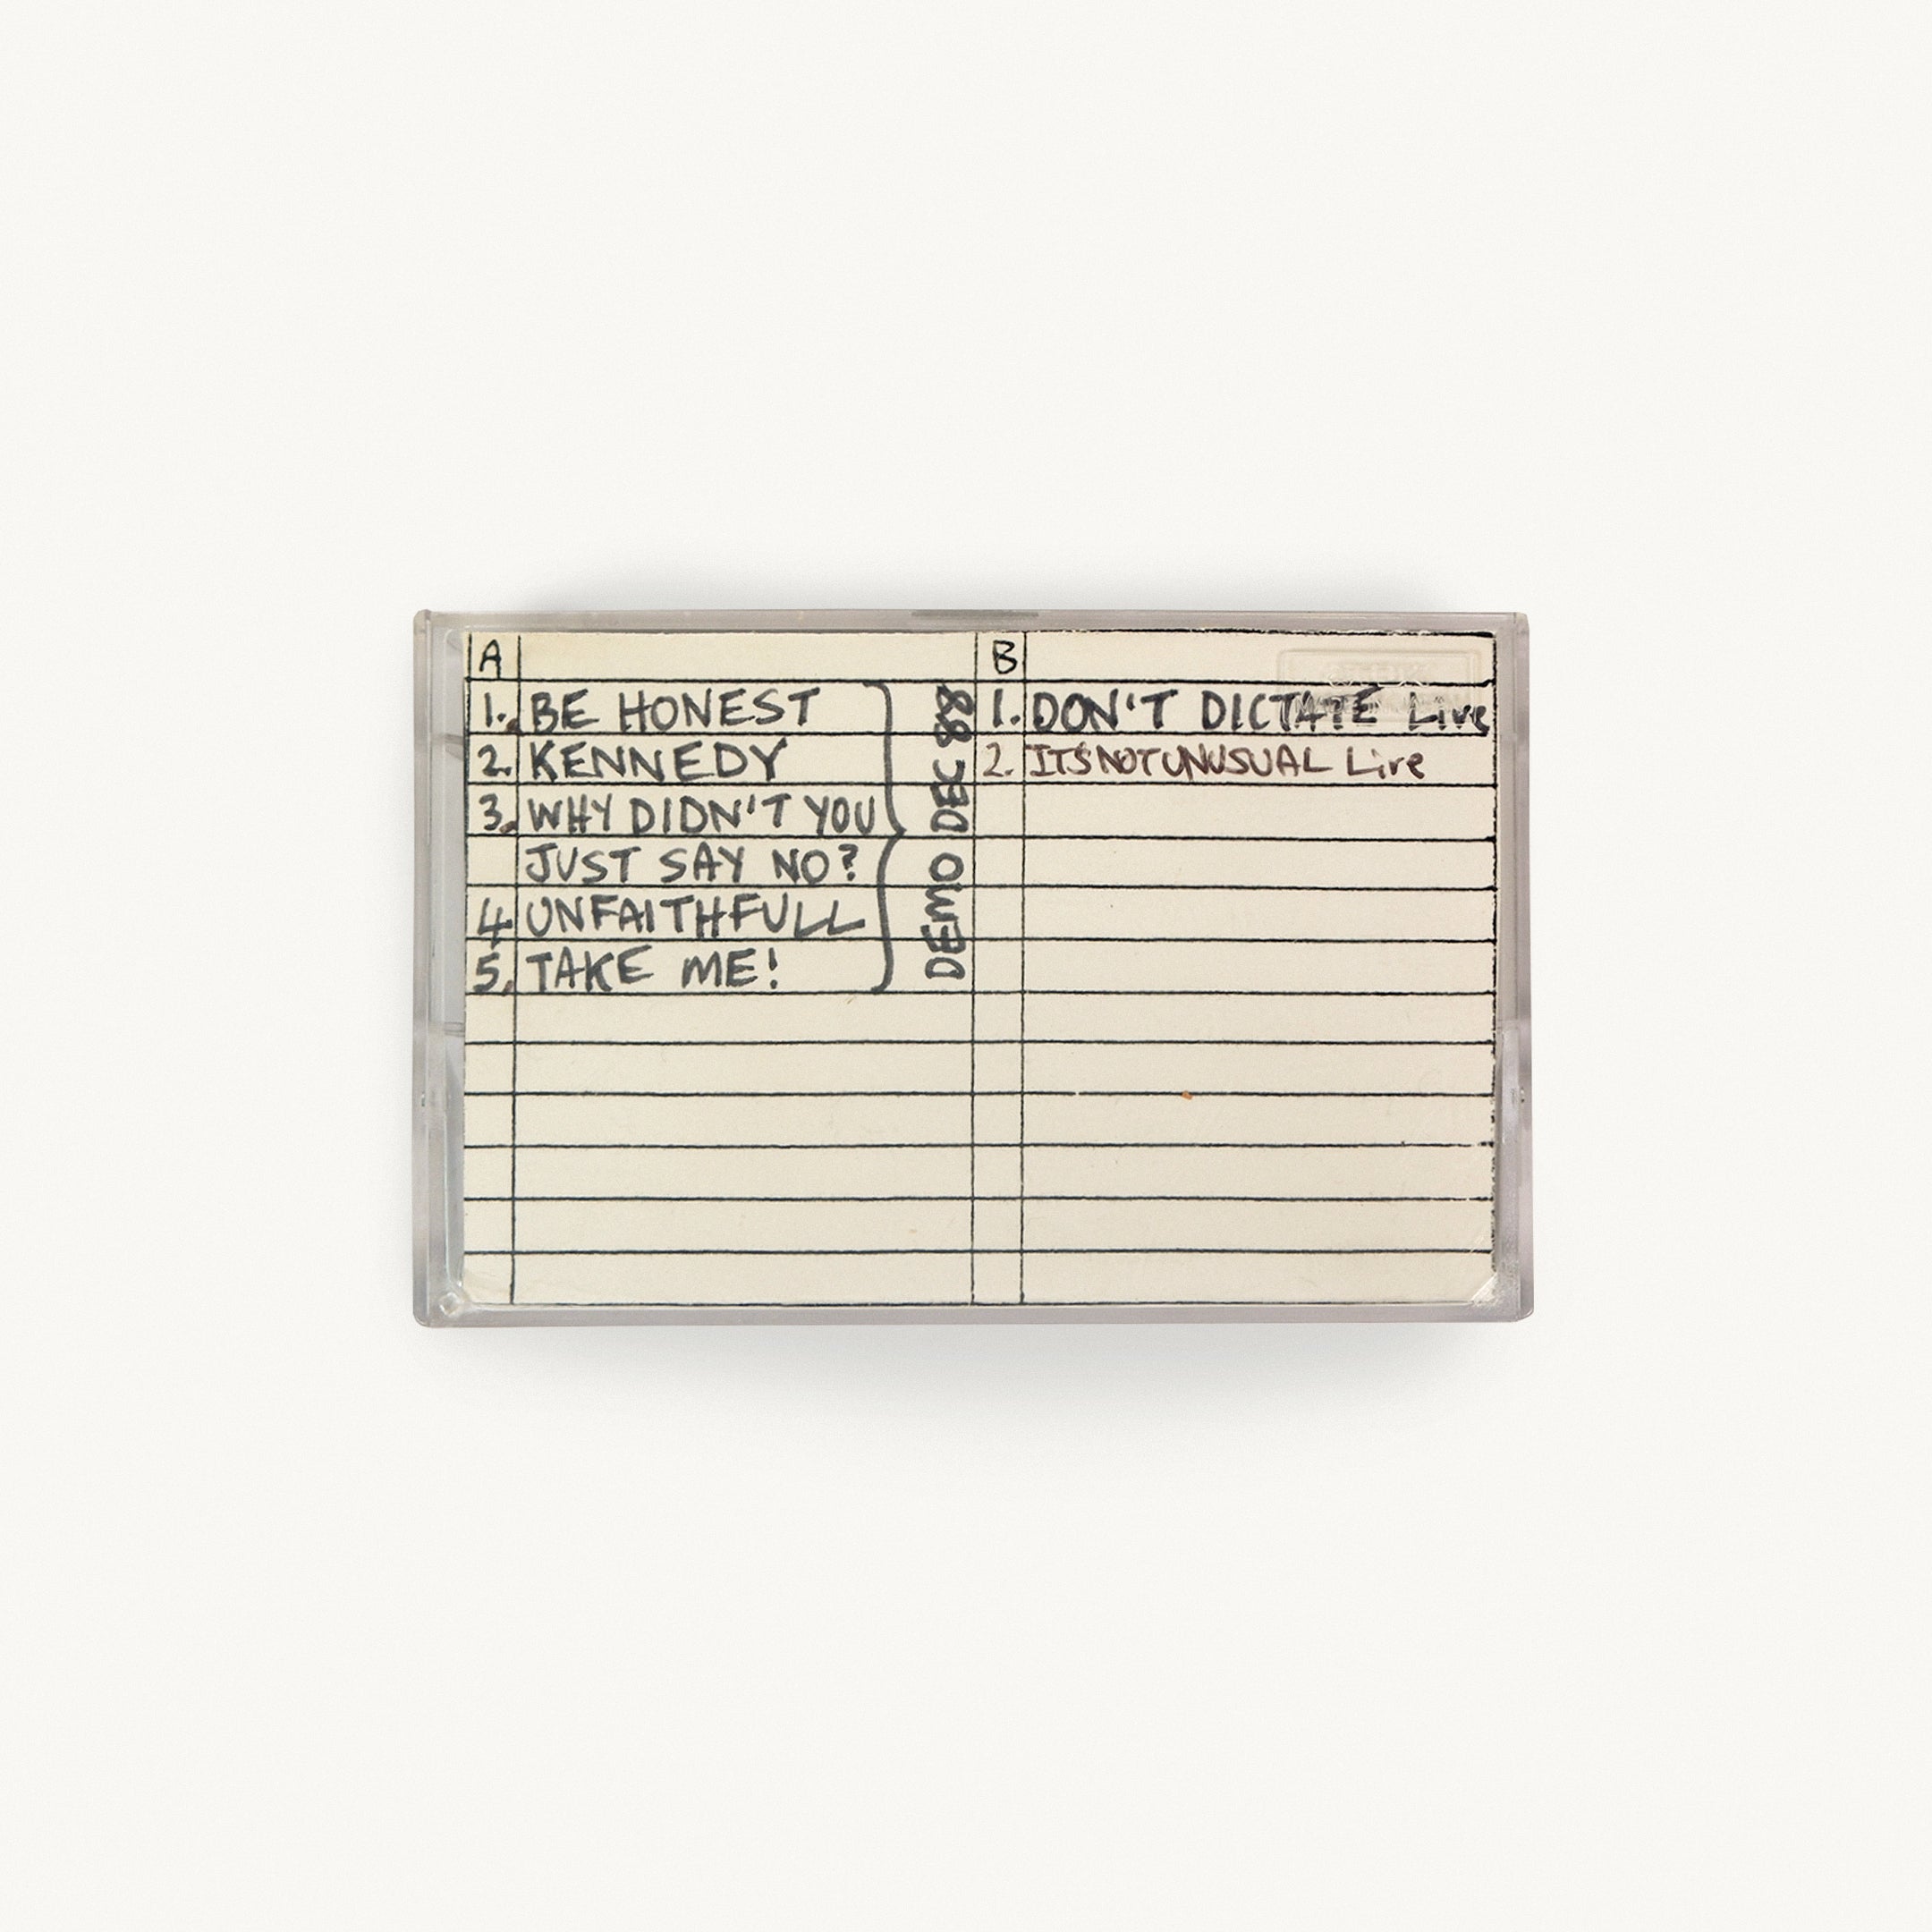 A
1. BE HONEST
2. KENNEDY
3. WHY DIDN'T YOU
JUST SAY NO?
4. UNFAITHFULL
5. TAKE ME!
DEMO DEC 88
B
1. DON'T DICTATE Live
2. IT'S NOT UNUSUAL Live